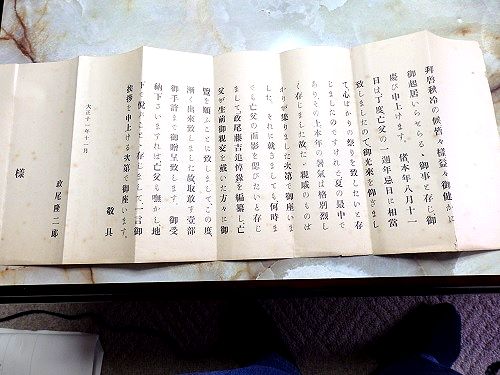 拜啓秋冷の候皆々様益々御健かに
御起居いらせらる、御事と存じ御
慶び申上げます。偖本年八月十一
日は丁度亡父の一週年忌日に相當
致しましたので御光來を得まして
て心ばかりの祭りを致したいと存
じましたのですけれど夏の最中で
ありその上本年の暑氣は格別烈し
く存じました故た〻親戚のものば
かりが集りました次第で御座いま
した。それに就きましても何時ま
でも亡父の面影を偲びたいと存じ
まして政尾藤吉追悼錄を編纂し亡
父が生前御親交を戴いた方々に御
覽を願ふことに致しまして、この度
漸く出來致しました故取敢ず壹部
御手許まで御贈呈致します。御受
納下さいますれば亡父も嘸かし地
下で悅ぶことゝ存じまして一言御
挨拶を申上げる次第で御座います。
敬具
大正十一年十一月
政尾隆二郎
様